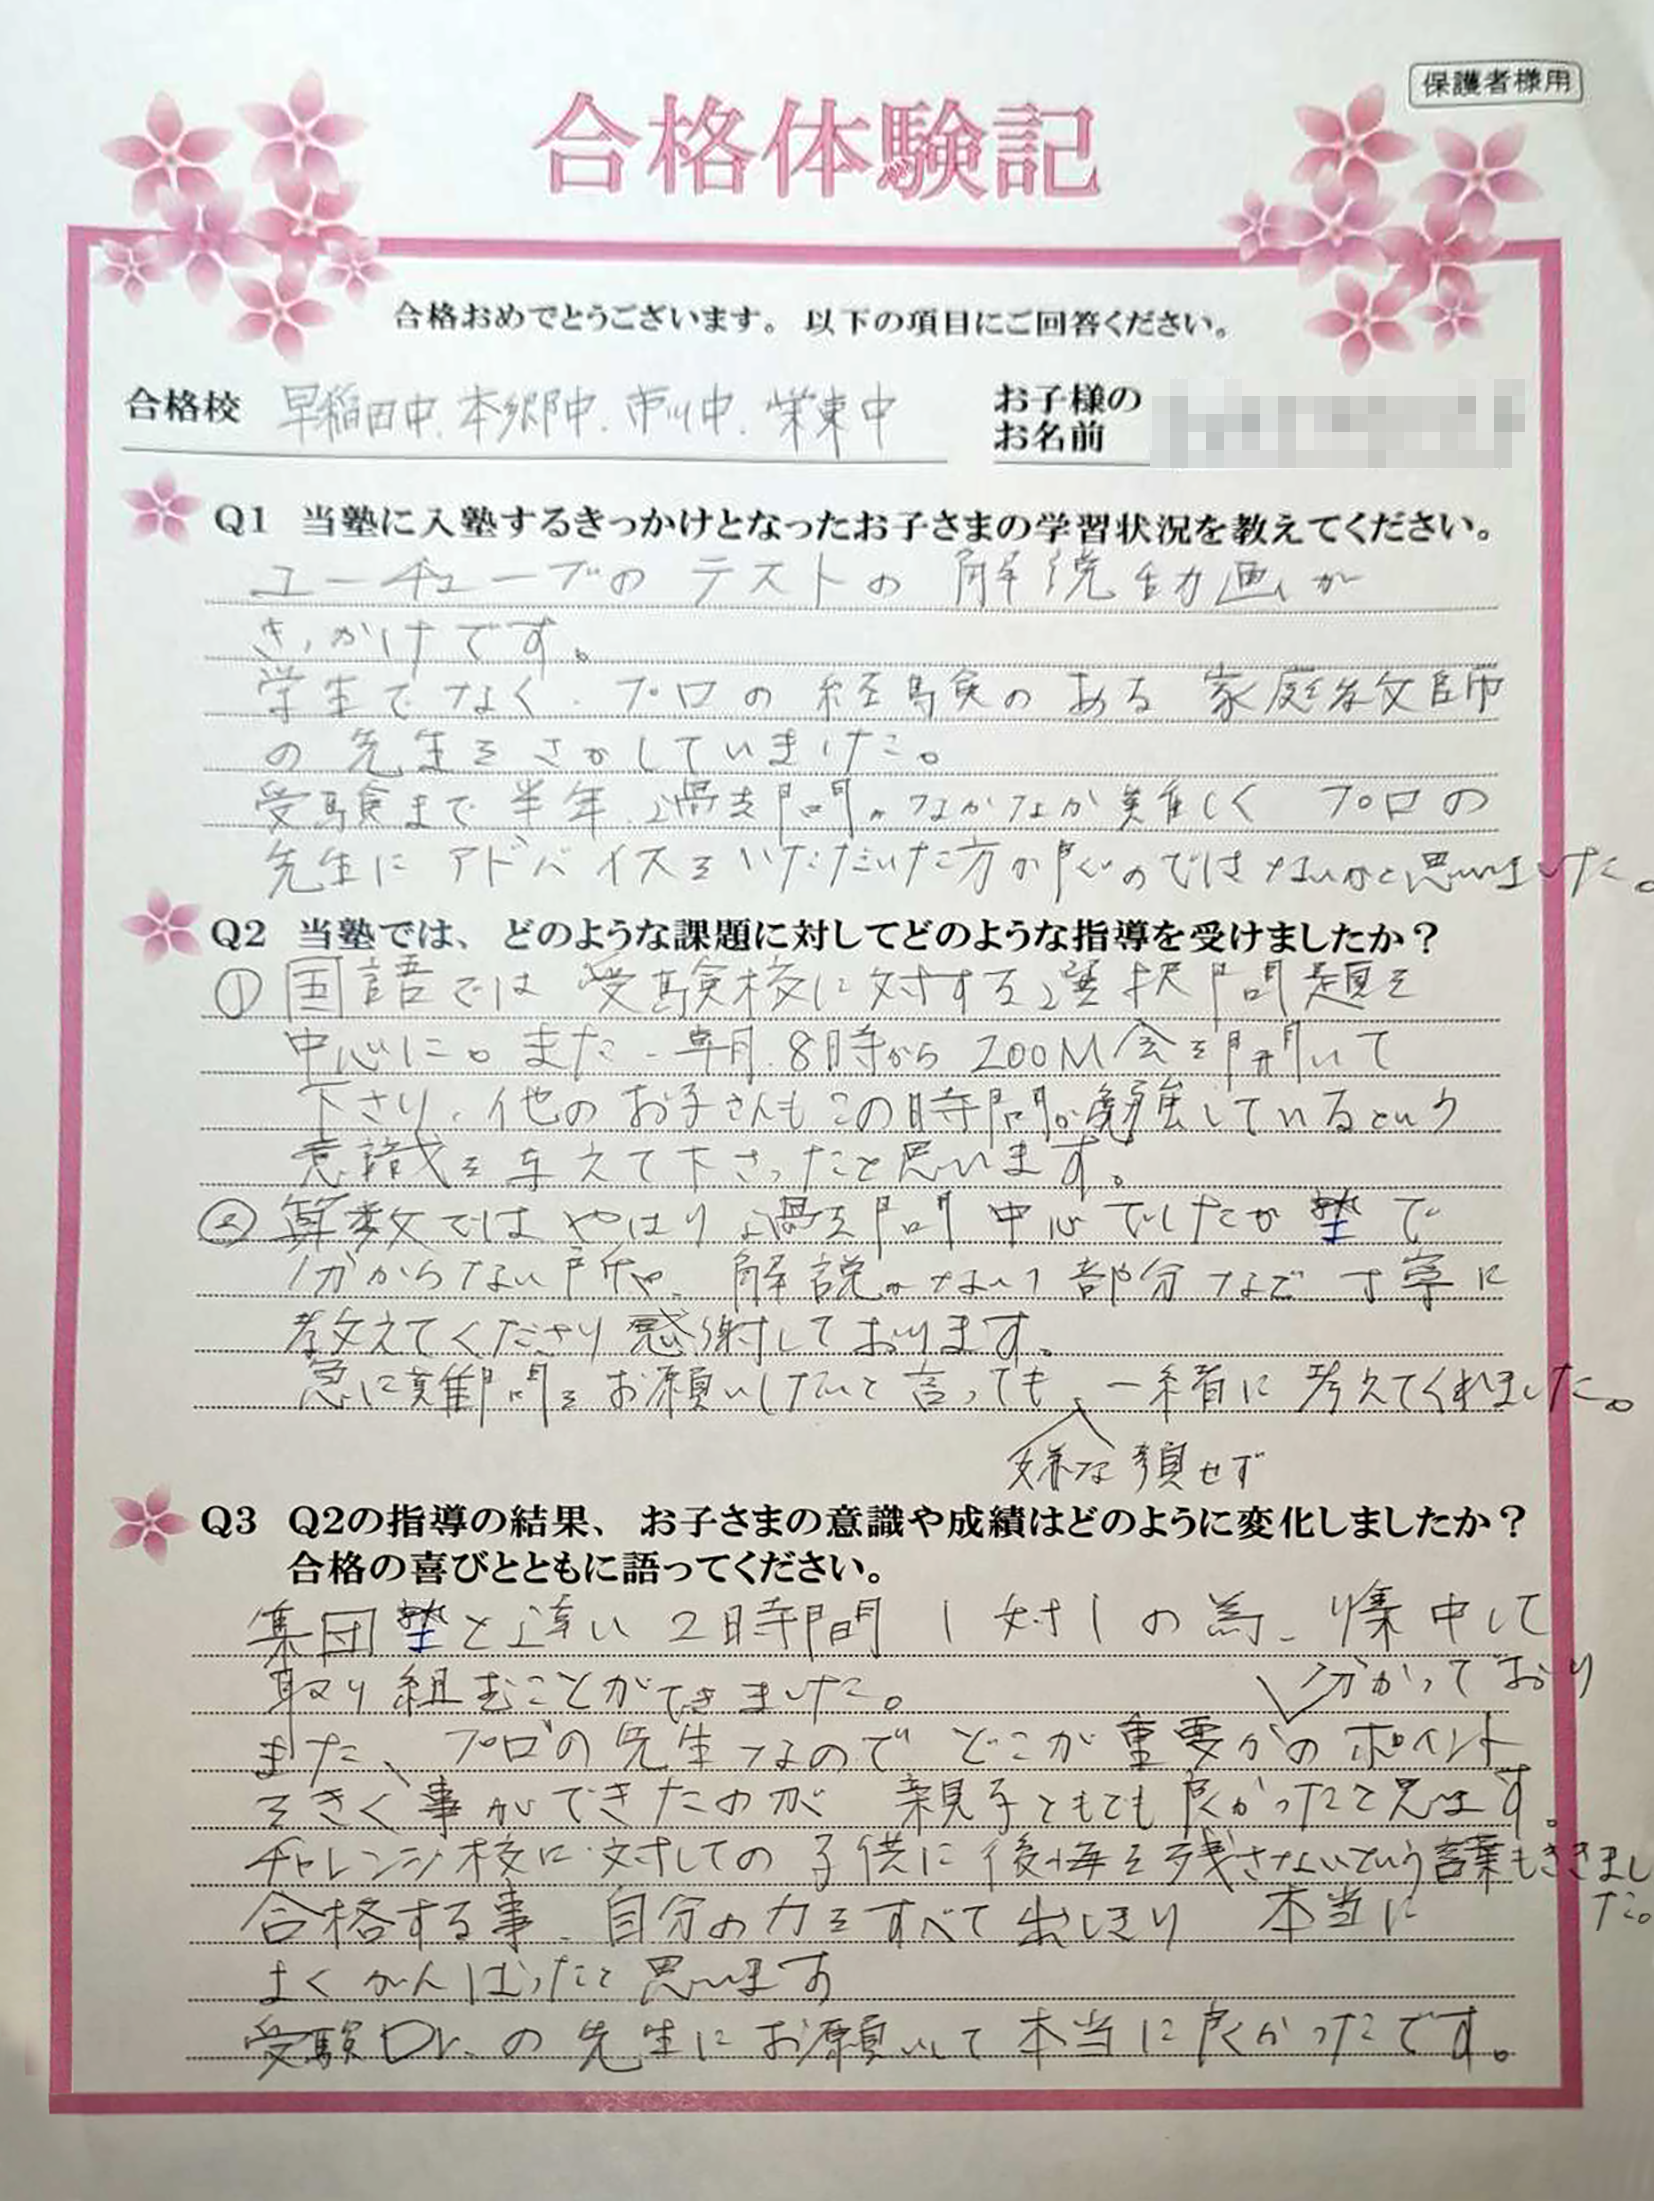 保護者様用
合格体験記
合格おめでとうございます。以下の項目にご回答ください。
合格校 早稲田中、本郷中、市川中、栄東中
お子様の
お名前
Q1 当塾に入塾するきっかけとなったお子さまの学習状況を教えてください。
ユーチューブのテストの解説動画が
きっかけです。
学生でなく、プロの経験のある家庭教師
の先生をさがしていました。
受験まで半年、過去問がなかなか難しくプロの
先生にアドバイスをいただいた方が良いのではないかと思いました。
Q2 当塾では、どのような課題に対してどのような指導を受けましたか？
① 国語では受験校に対する選択問題を
中心に。また、朝、8時からZOOM会を開いて
下さり、他のお子さんもこの時間が勉強しているという
意識を与えて下さったと思います。
② 算数ではやはり過去問中心でしたが塾で
分からない所や、解説がない部分など丁寧に
教えてくださり感謝しております。
急に難問をお願いしたいと言っても、一緒に考えてくれました。
嫌な顔せず
Q3 Q2の指導の結果、お子さまの意識や成績はどのように変化しましたか？
合格の喜びとともに語ってください。
集団塾と違い2時間1対1の為、集中して
取り組むことができました。
分かっており
また、プロの先生なのでどこが重要かのポイント
をきく事ができたのが親子ともども良かったと思います。
チャレンジ校に対しての子供に後悔を残させないという言葉もききまし
た。
合格する事、自分の力をすべて出しきり本当に
よくがんばったと思います
受験Dr.の先生にお願いして本当に良かったです。